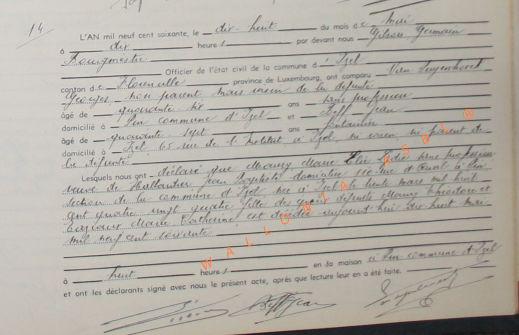 14
L'AN mil neuf cent soixante, le dix-huit du mois de Mai
à dix heures par devant nous Gilson Germain
Bourgmestre
Officier de l'état civil de la commune d'Izel
canton de Florenville province de Luxembourg, ont comparu Van
Georges non parent mais voisin de la défunte
âgé de quarante six ans sans profession
domicilié à Pin commune d'Izel et Jean
âgé de quarante sept ans fontainier
domicilié à Izel, 65 rue de l'Institut à Izel, ni voisin ni parent de
la défunte.
Lesquels nous ont déclaré que Maury Marie sans profession
veuve de Jean Baptiste domiciliée rue à Pin
section de la commune d'Izel née à Izel le trente mars mil huit
cent quatre vingt quatre fille des époux défunts Maury Théodore et
Marie Catherine est décédée aujourd'hui dix huit mai
mil neuf cent soixante
à huit heures en sa maison à Pin commune d'Izel
et ont les déclarants signé avec nous le présent acte, après que lecture leur en a été faite.